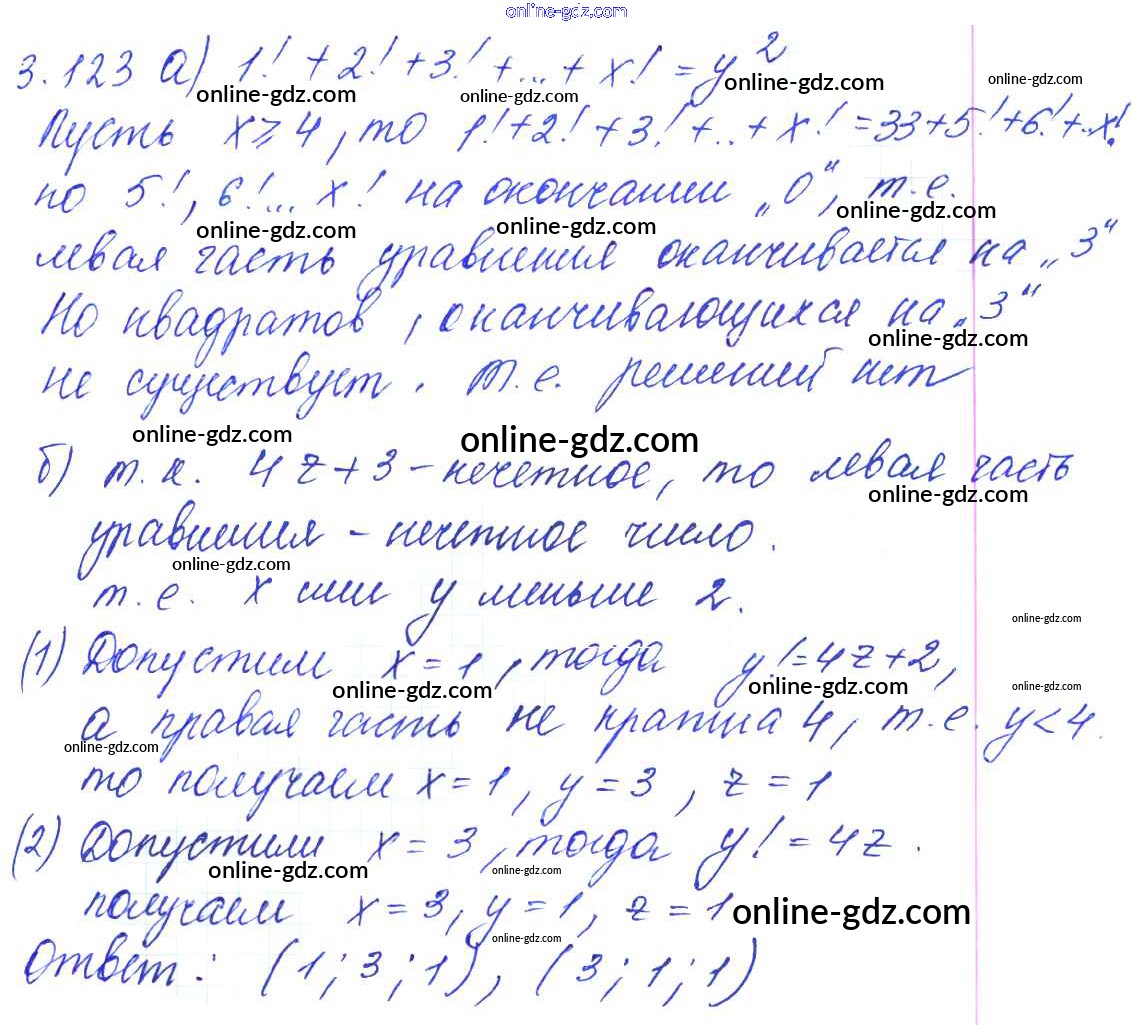 online-gdz.com
3.123 а) 1! + 2! + 3! + ... + x! = y²
online-gdz.com online-gdz.com online-gdz.com online-gdz.com
Пусть x ⩾ 4, то 1! + 2! + 3! + .. + x! = 33 + 5! + 6! + ..x!
но 5!, 6!... x! на окончании „0“, т.е.
online-gdz.com online-gdz.com online-gdz.com
левая часть уравнения оканчивается на „3“
Но квадратов, оканчивающихся на „3“
online-gdz.com
не существует. Т.е. решений нет
online-gdz.com online-gdz.com
б) т.к. 4z+3 - нечетное, то левая часть
online-gdz.com
уравнения - нечетное число.
online-gdz.com
т.е. x или y меньше 2.
online-gdz.com
(1) Допустим x = 1, тогда y! = 4z+2,
online-gdz.com online-gdz.com online-gdz.com
а правая часть не кратна 4, т.е. y < 4.
online-gdz.com
то получаем x = 1, y = 3, z = 1
(2) Допустим x = 3, тогда y! = 4z.
online-gdz.com online-gdz.com
получаем x = 3, y = 1, z = 1
online-gdz.com
online-gdz.com
Ответ: (1; 3; 1), (3; 1; 1)